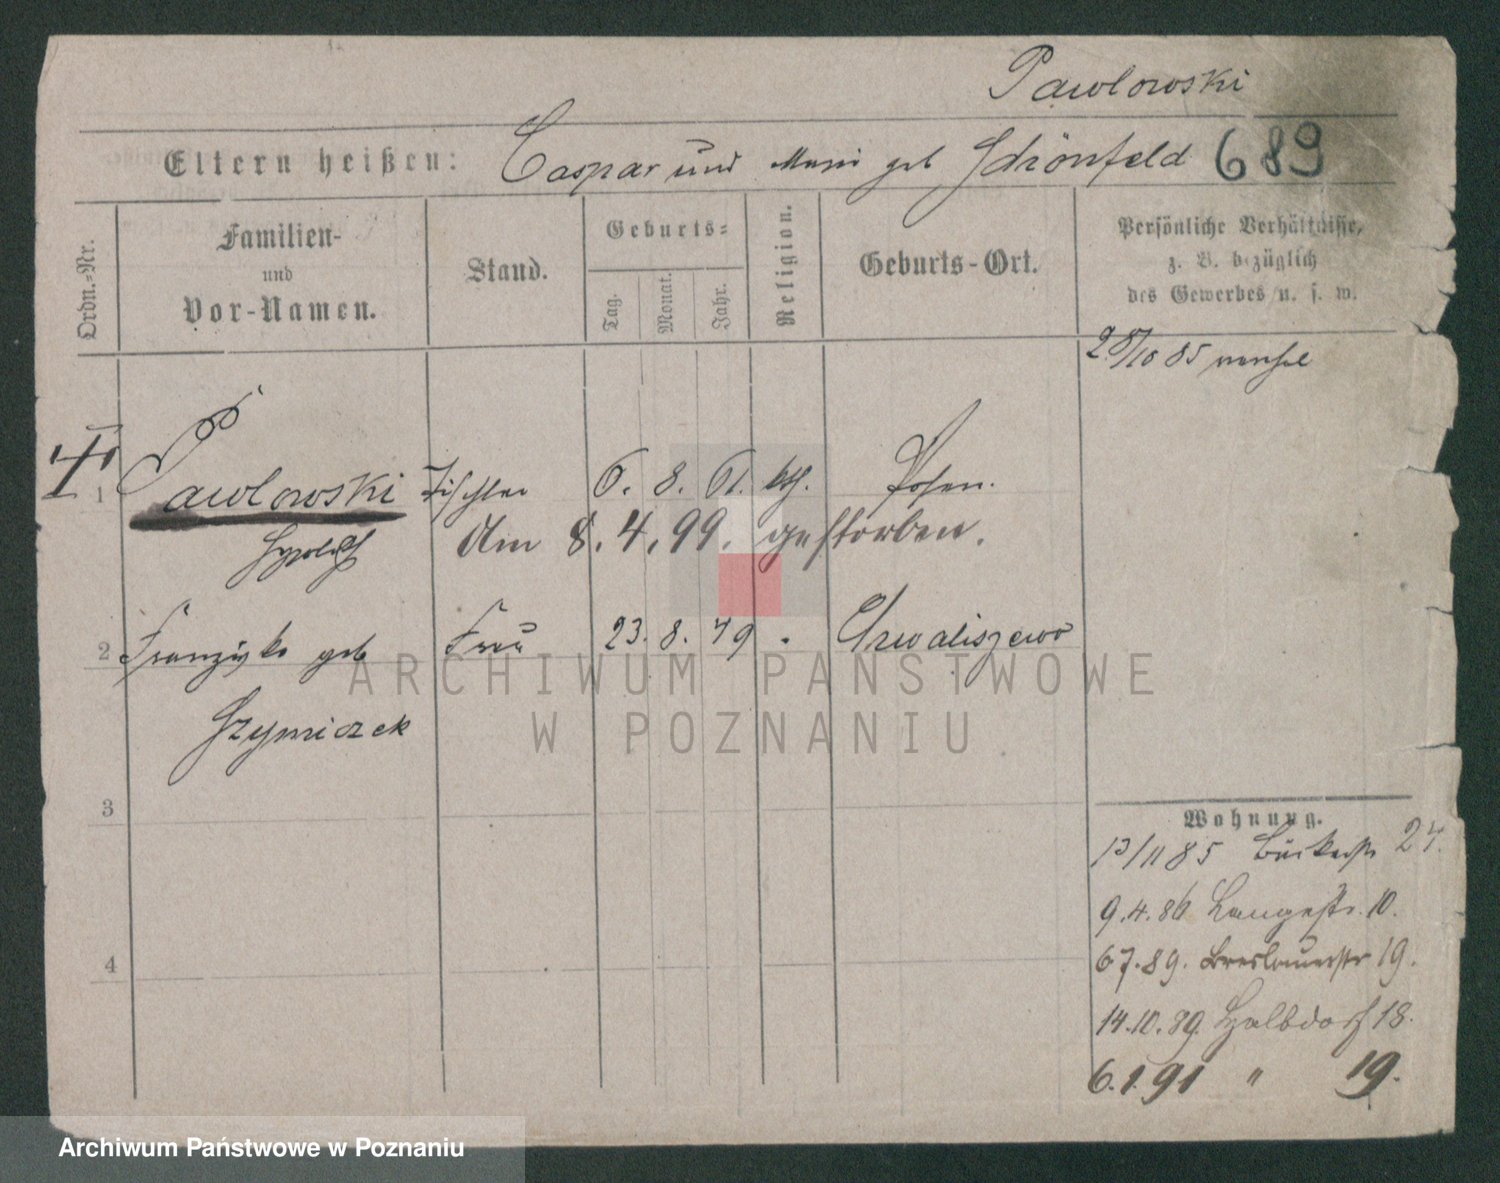 Pawlowski
Eltern heißen: Caspar und Marie geb Schönfeld 689
Ordn.-Nr.
Familien-
und
Vor-Namen.
Stand.
Geburts-
Tag.
Monat.
Jahr.
Religion.
Geburts-Ort.
Persönliche Verhältnisse,
z. B. bezüglich
des Gewerbes u. s. w.
28/10 85
1 Pawlowski Tischler 6. 8. 61. kth. Posen.
Am 8.4.99. gestorben.
2 Franziska geb Frau 23. 8. 49
Szymiczek
3
4
Wohnung.
13/11 85 Bäckerstr 24.
9.4.86 Langestr. 10.
6.7.89. Breslauerstr 19.
14.10.89. Halbdorf 18.
6.1.91 " 19.
ARCHIWUM PAŃSTWOWE
W POZNANIU
Archiwum Państwowe w Poznaniu